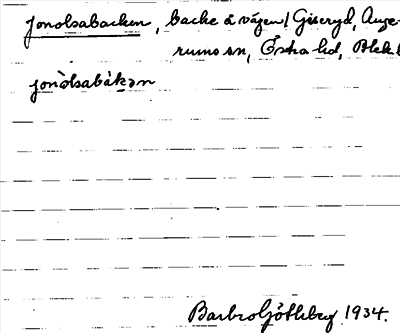 Jonolsabacken, backe å vägen, Giseryd, Auge-
rums sn, Östra hd, Blek
jonòlsabàkən
Barbro Göthberg 1934.